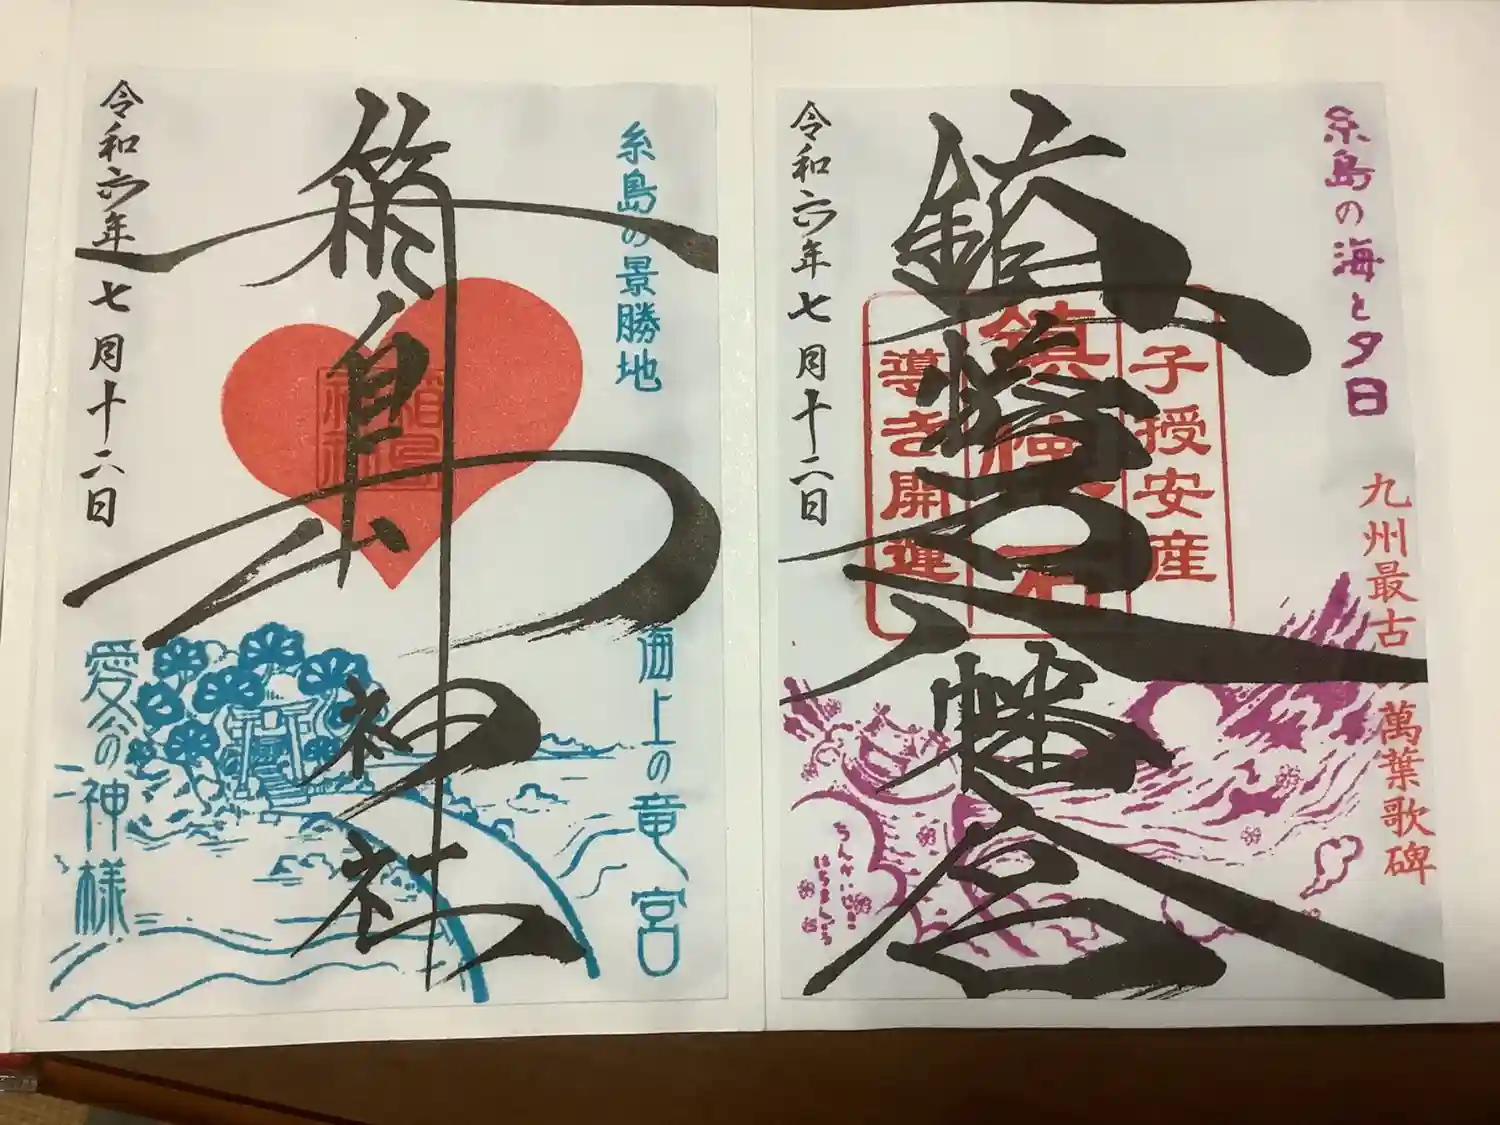 糸島の海と夕日
九州最古の萬葉歌碑
子授安産
鎮懐石
導き開運
鎮懐石八幡宮
令和六年七月十二日
ちんかいせき
はちまんぐう
糸島の景勝地
海上の竜宮
箱島神社
箱島
神社
令和六年七月十二日
愛 の神様